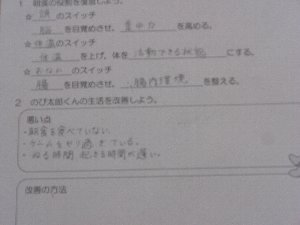 1 朝食の役割を復習しよう。
☆ 頭のスイッチ
脳を目覚めさせ、集中力を高める。
☆ 体温のスイッチ
体温を上げ、体を活動できる状態にする。
☆ おなかのスイッチ
腸を目覚めさせ、腸内環境を整える。
2 のび太郎くんの生活を改善しよう。
悪い点
・朝食を食べていない。
・ゲームをやり過ぎている。
・ねる時間 起きる時間が遅い。
改善の方法